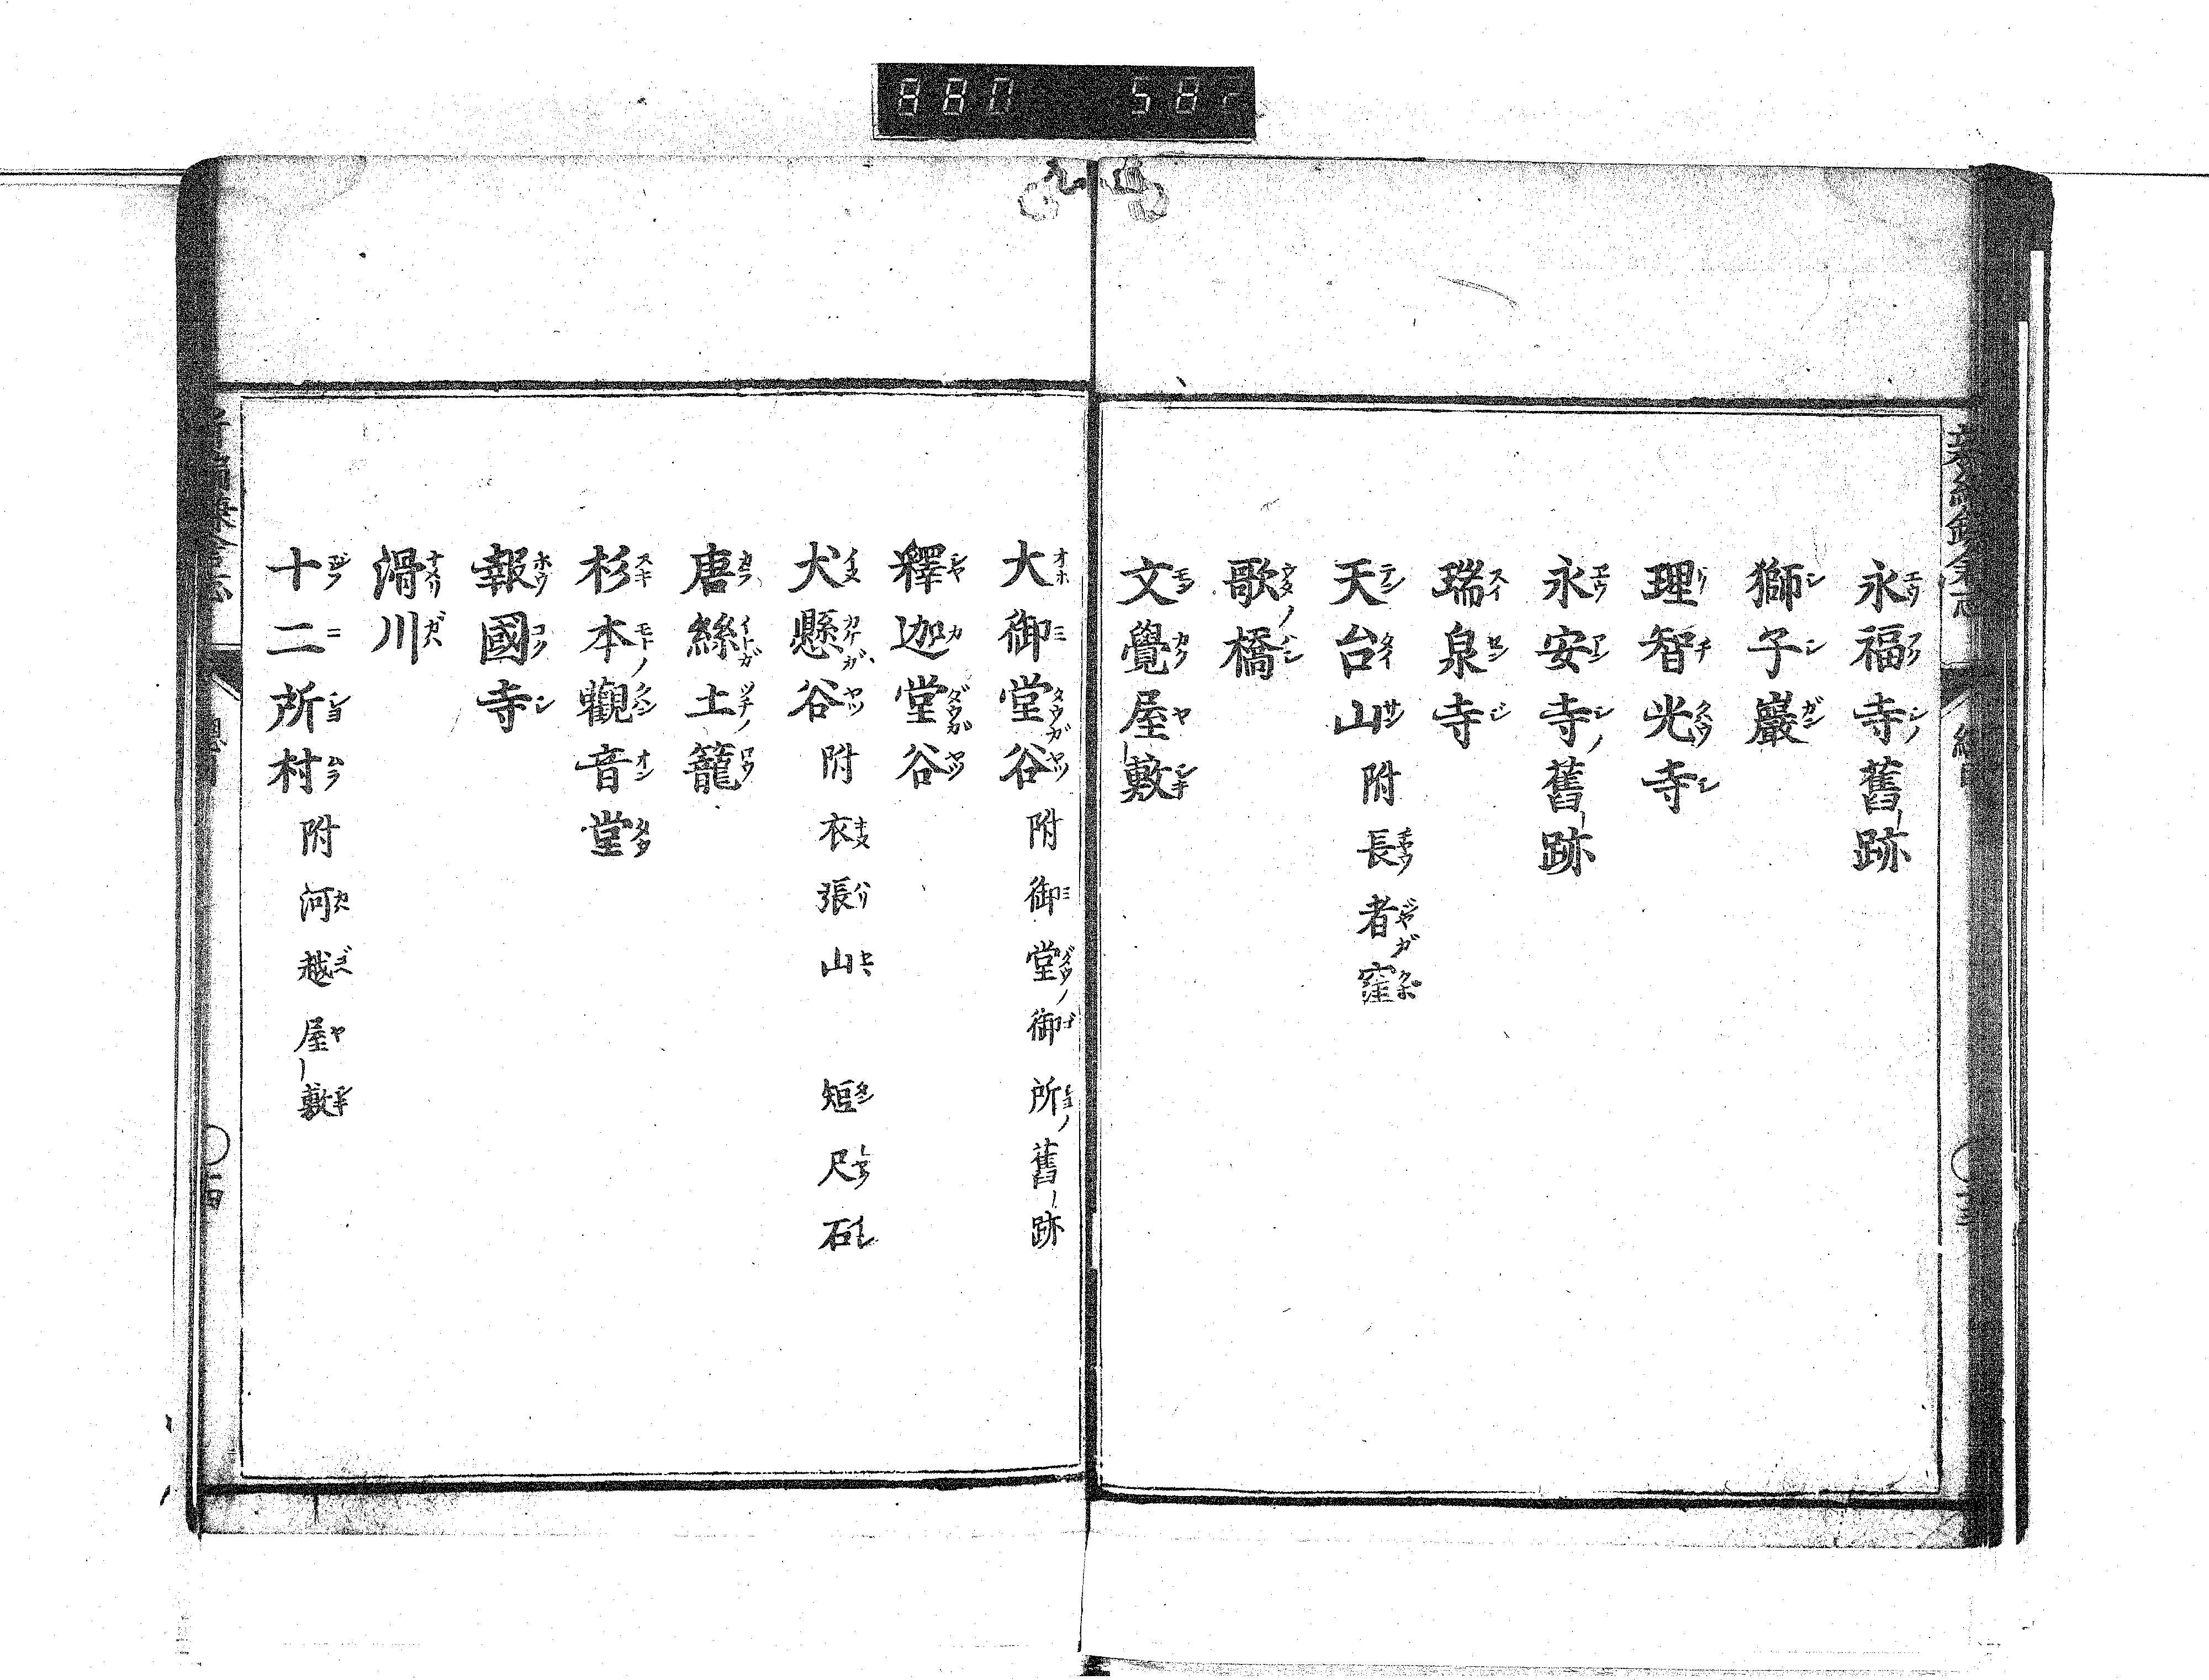 永福寺舊跡
獅子巖
理智光寺
永安寺舊跡
瑞泉寺
天台山 附 長者窪
歌橋
文覺屋敷
大御堂谷 附 御堂御所舊跡
釋迦堂谷
犬懸谷 附 衣張山 短尺石
唐絲土籠
杉本觀音堂
報國寺
滑川
十二所村 附 河越屋敷